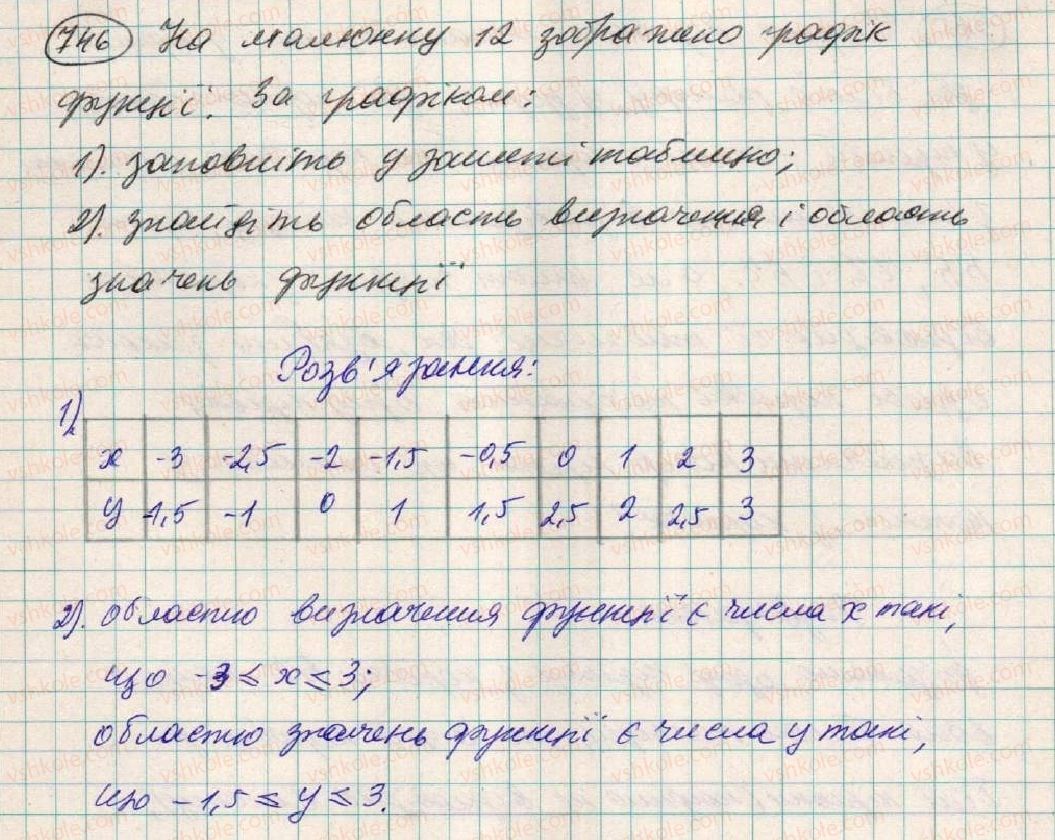 746 На малюнку 12 зображено графік
функції. За графіком:
1). заповніть у зошиті таблицю;
2). знайдіть область визначення і область
значень функції
Розв'язання:
1)
x -3 -2,5 -2 -1,5 -0,5 0 1 2 3
y -1,5 -1 0 1 1,5 2,5 2 2,5 3
2). Областю визначення функції є числа x такі,
що -3 ≤ x ≤ 3;
областю значень функції є числа y такі,
що -1,5 ≤ y ≤ 3.